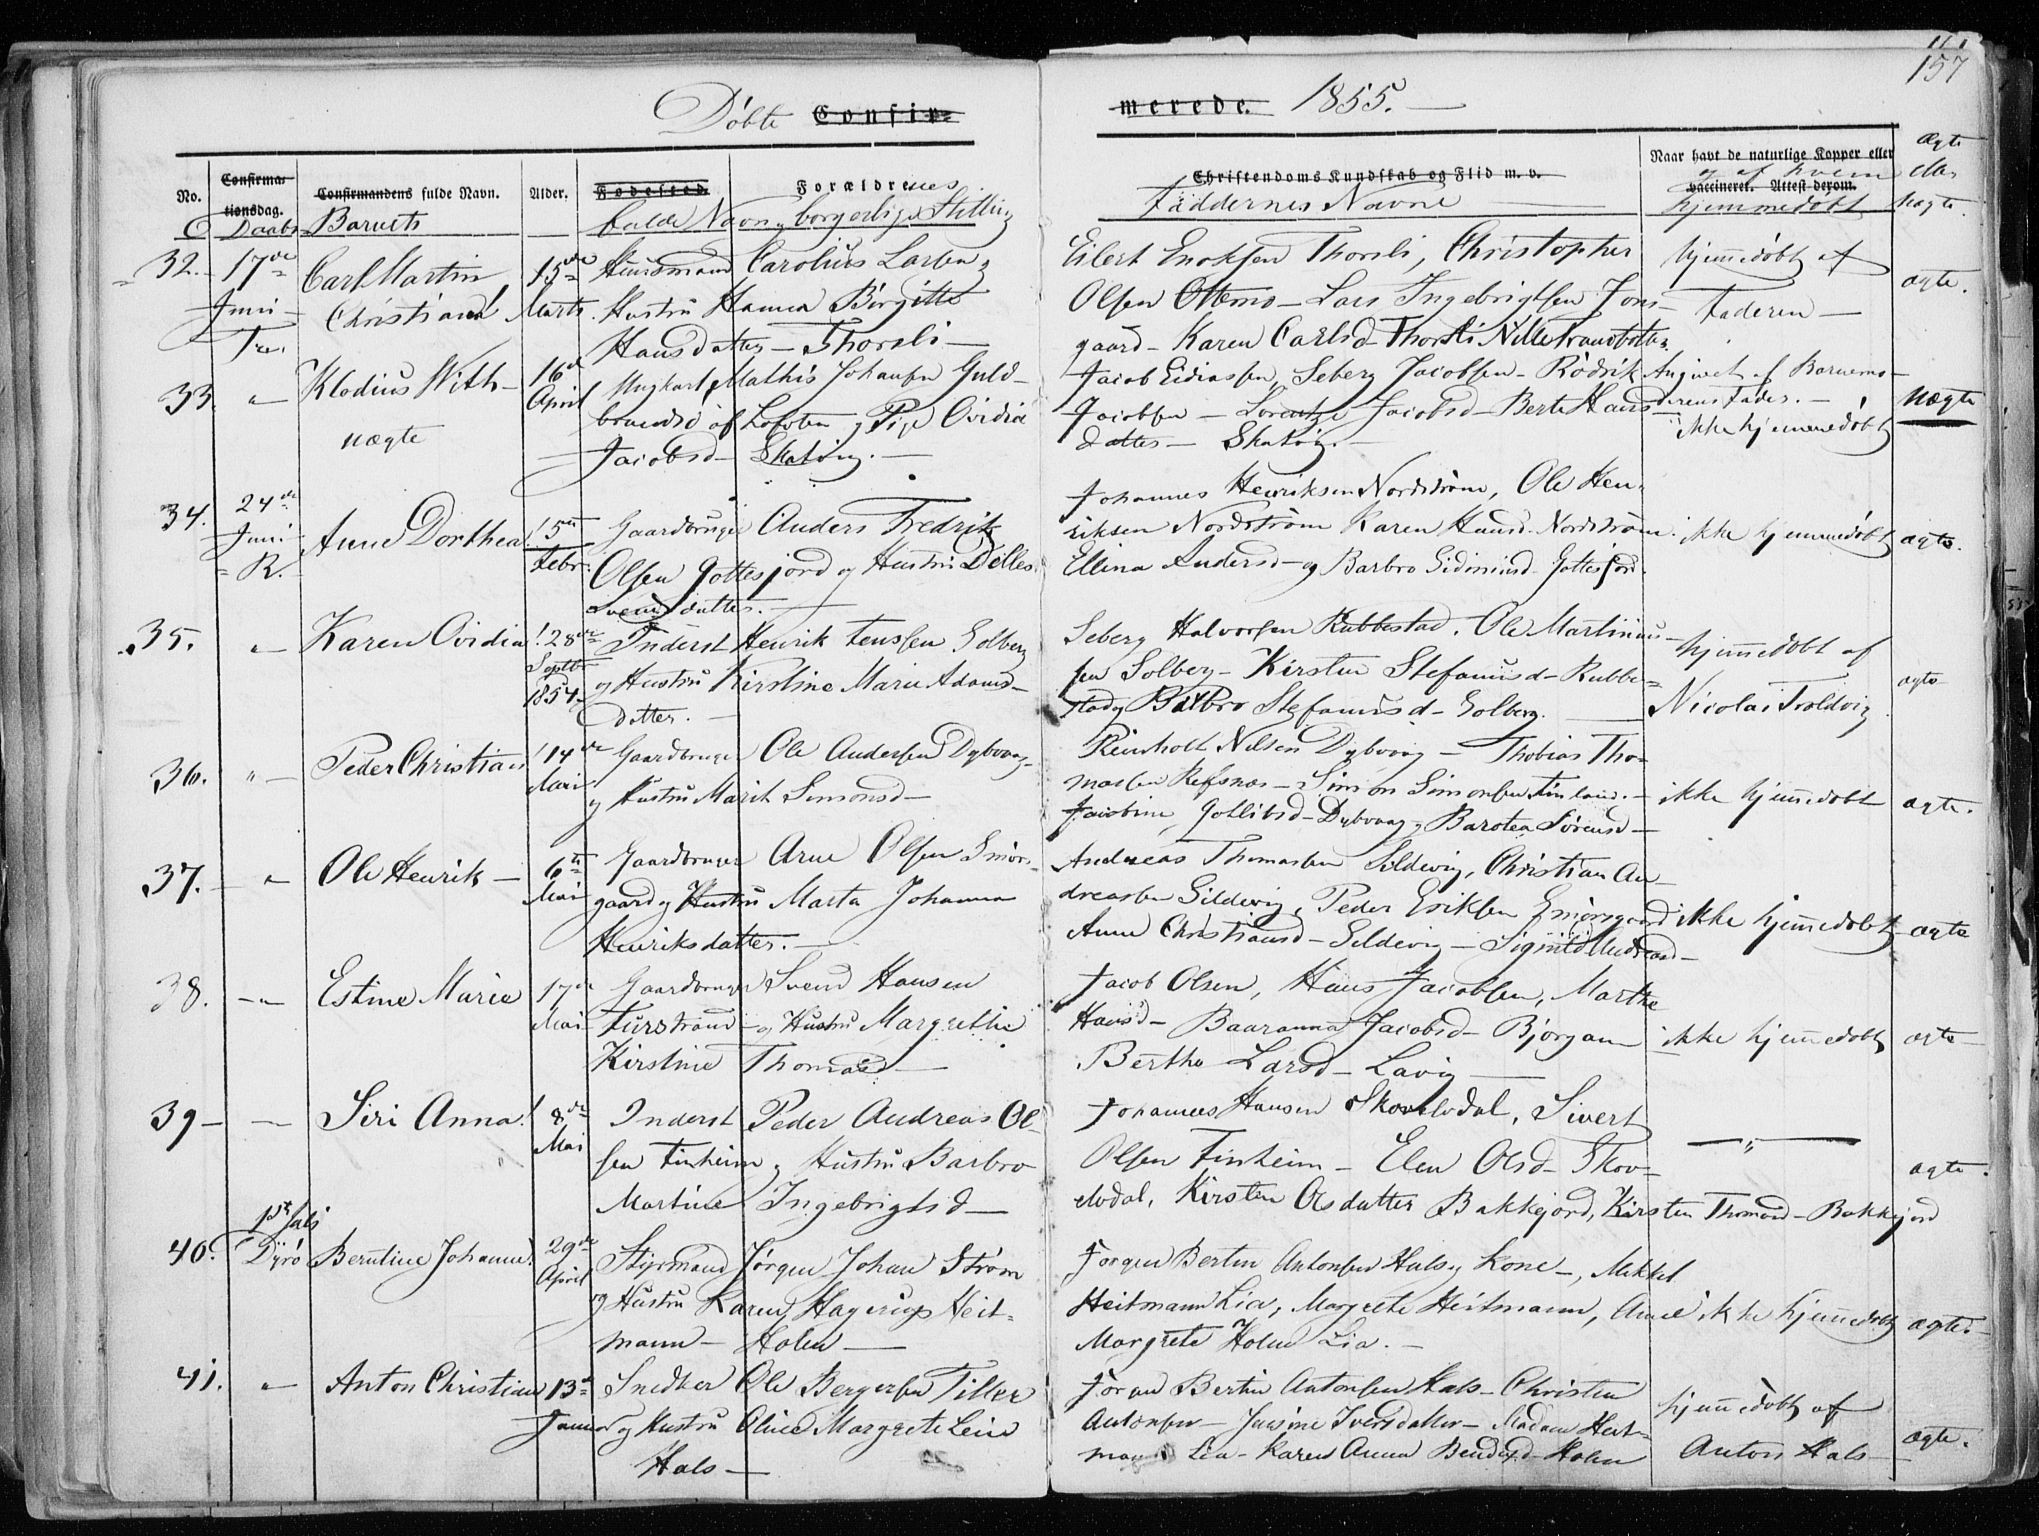 157
Døbte Confir=
merede. 1855.
No. Confirmationsdag. Confirmandens fulde Navn. Alder. Fødested. Forældrenes
Daabs Barnets fulde Navn og borgerlige Stilling
Christendoms Kundskab og Flid m. v. Naar havt de naturlige Kopper eller vaccineret. Attest derom.
Faddernes Navne
og af hvem hjemmedøbt
Ægte eller uægte.
32. 17de Juni Tr. Carl Martin Christian! 15de Marts.
Huusmand Carolius Larsen og
Hustru Hanna Birgitte
Hansdatter – Thorsli –
Eilert Enoksen Thorsli, Christopher
Olsen Ottemo – Lars Ingebrigtsen Jons
gaard – Karen Carlsd – Thorsli Nille
hjemmedøbt af
Faderen –
ægte.
33. " Klodius With – uægte 16de April
Ungkarl Mathis Johansen Guld-
brandsø af Lofoten og Pige Ovidia
Jacobsd – Skatvig. –
Jacob Eidiassen, Seberg Jacobsen – Rødvik
Jacobsen – Lorentze Jacobsd – Berte Hans
datter – Skatvig. –
Angivet af Barnemo-
derens Fader. –
ikke hjemmedøbt
uægte
34. 24de Juni R. Anne Dorthea! 5te Febr.
Gaardbruger Anders Fredrik
Olsen Gottesjord og Hustru Dilles
Svendsdatter. –
Johannes Henriksen Nordstrøm, Ole Hen-
riksen Nordstrøm Karen Hansd. Nordstrøm.
Ellina Andersd – og Barbro Gottesjord.
ikke hjemmedøbt
ægte.
35. " Karen Ovidia! 28de Septbr 1854.
Inderst Henrik Jenssen Solberg
og Hustru Kirstine Marie Adams-
datter. –
Seberg Halvorsen Rubbestad. Ole Martinus-
sen Solberg – Kirsten Stefanusd – Rubbe=
stad og Barbro Stefanusd – Solberg.
hjemmedøbt af
Nicolai Troldvig
ægte
36. " Peder Christian! 14de Mai
Gaardbruger Ole Andersen Dybvaag
og Hustru Marit Simonsd –
Reinholt Nilsen Dybvaag – Thobias Tho-
massen Refsnæs – Simon Simonsen Finland. –
Jacobine Gotlibsd – Dybvaag og Barotea Sørensd –
ikke hjemmedøbt
ægte.
37. " Ole Henrik – 6te Mai
Gaardbruger Arne Olsen Smørs-
gaard og Hustru Marta Johanna
Henriksdatter. –
Andreas Thomassen Sildevig, Christian An-
dreassen Sildevig, Peder Eriksen Smørsgaard
Anne Christiansd – Sildevig – Andreasd –
ikke hjemmedøbt
ægte
38. " Estine Marie 17de Mai
Gaardbruger Svend Hansen
Furstrand – og Hustru Margrethe
Kirstine Thomasd –
Jacob Olsen, Hans Jacobsen, Marthe
Hansd – Baaranna Jacobsd – Bjorgam
Berthe Larsd – Lavig –
ikke hjemmedøbt
ægte
39 – Siri Anna! 8de Mai
Inderst Peder Andreas Ol-
sen Finheim og Hustru Barbro
Martine Ingebrigtsd –
Johannes Hansen Skovelvdal, Sivert
Olsen Finheim – Elen Olsd – Skov-
elvdal, Kirsten Olsdatter Bakkejord, Kirsten Thomasd – Bakkejord
— " —
ægte.
40. 1ste Juli Dyrø Berntine Johanne! 29de April
Styrmand Jørgen Johan Strøm
og Hustru Karen Hagerup Heit-
mann – Holm –
Jørgen Bertin Antonsen Hals og Kone –, Mikkel
Heitmann Lia, Margrete Heitmann, Anne
Margrete Holm Lia. –
ikke hjemmedøbt
ægte –
41. " Anton Christian 13de Januar
Snedker Ole Bergersen Tiller
og Hustru Oline Margrete Leir
Hals –
Jørgen Bertin Antonsen Hals – Christen
Antonsen – Jensine Iversdatter – Madam Heit-
mann Lia – Karen Anna Bendixd – Holm
hjemmedøbt af
Anton Hals –
ægte.